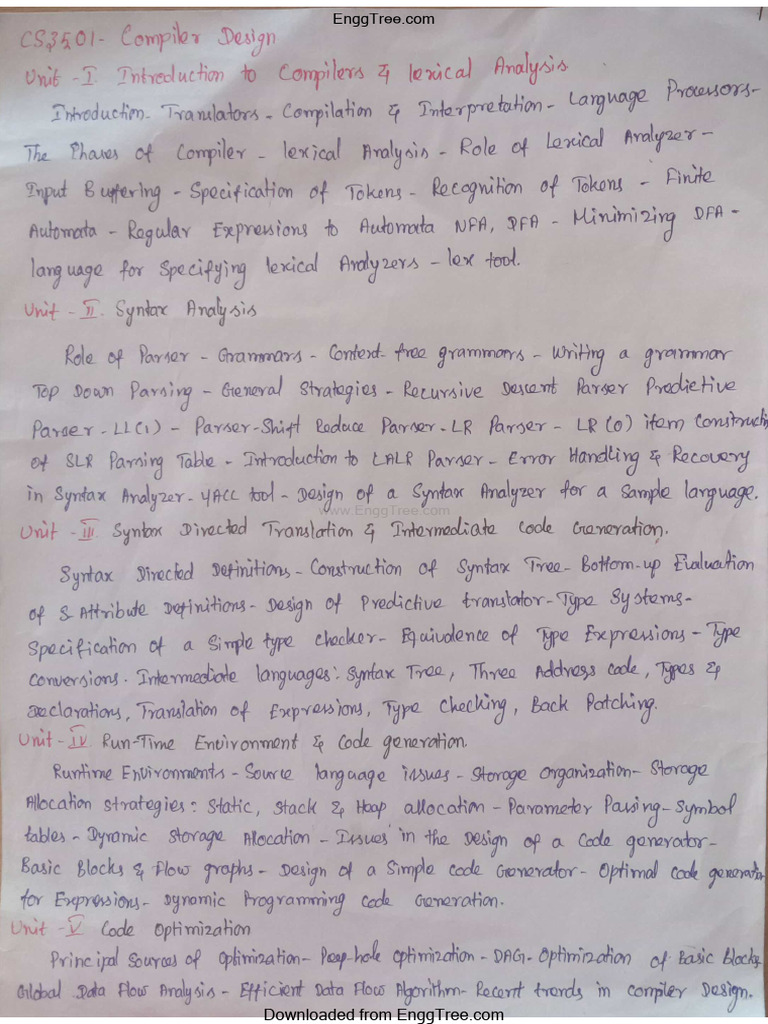 EnggTree.com
1
CS3501- Compiler Design
Unit -I. Introduction to Compilers & lexical Analysis.
Introduction- Translators - Compilation & Interpretation - Language Processors-
The Phases of Compiler - lexical Analysis - Role of Lexical Analyzer -
Input Buffering - Specification of Tokens - Recognition of Tokens - Finite
Automata - Regular Expressions to Automata NFA, DFA - Minimizing DFA -
language for Specifying lexical Analyzers - lex tool.
Unit - II. Syntax Analysis
Role of Parser - Grammars - Context- free grammars - Writing a grammar
Top Down Parsing - General Strategies - Recursive Descent Parser Predictive
Parser - LL(1) - Parser-Shift Reduce Parser - LR Parser - LR (0) item Constructi
of SLR Parsing Table - Introduction to LALR Parser - Error Handling & Recovery
in Syntax Analyzer - YACC tool - Design of a Syntax Analyzer for a Sample language.
www.EnggTree.com
Unit - III Syntax Directed Translation & Intermediate Code Generation.
Syntax Directed Definitions - Construction of Syntax Tree - Bottom-up Evaluation
of S Attribute Definitions - Design of Predictive translator - Type Systems -
Specification of a Simple type checker - Equivalence of Type Expressions - Type
Conversions. Intermediate languages: Syntax Tree, Three Address code, Types &
Declarations, Translation of Expressions, Type Checking, Back Patching.
Unit - IV Run-Time Environment & Code generation.
Runtime Environments - Source language issues - Storage Organization- Storage
Allocation strategies: Static, Stack & Heap allocation - Parameter Passing - Symbol
tables - Dynamic Storage Allocation - Issues in the Design of a Code generator -
Basic Blocks & Flow graphs - Design of a Simple code Generator - Optimal Code generator
for Expressions - Dynamic Programming code Generation.
Unit - V Code Optimization
Principal Sources of Optimization - Peep-hole optimization - DAG - Optimization of Basic Blocks
Global Data Flow Analysis - Efficient Data Flow Algorithm - Recent trends in compiler Design.
Downloaded from EnggTree.com